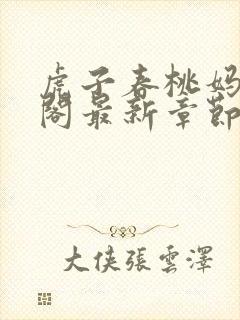 虎子春桃妈
阁最新章節
大侠張雲澤